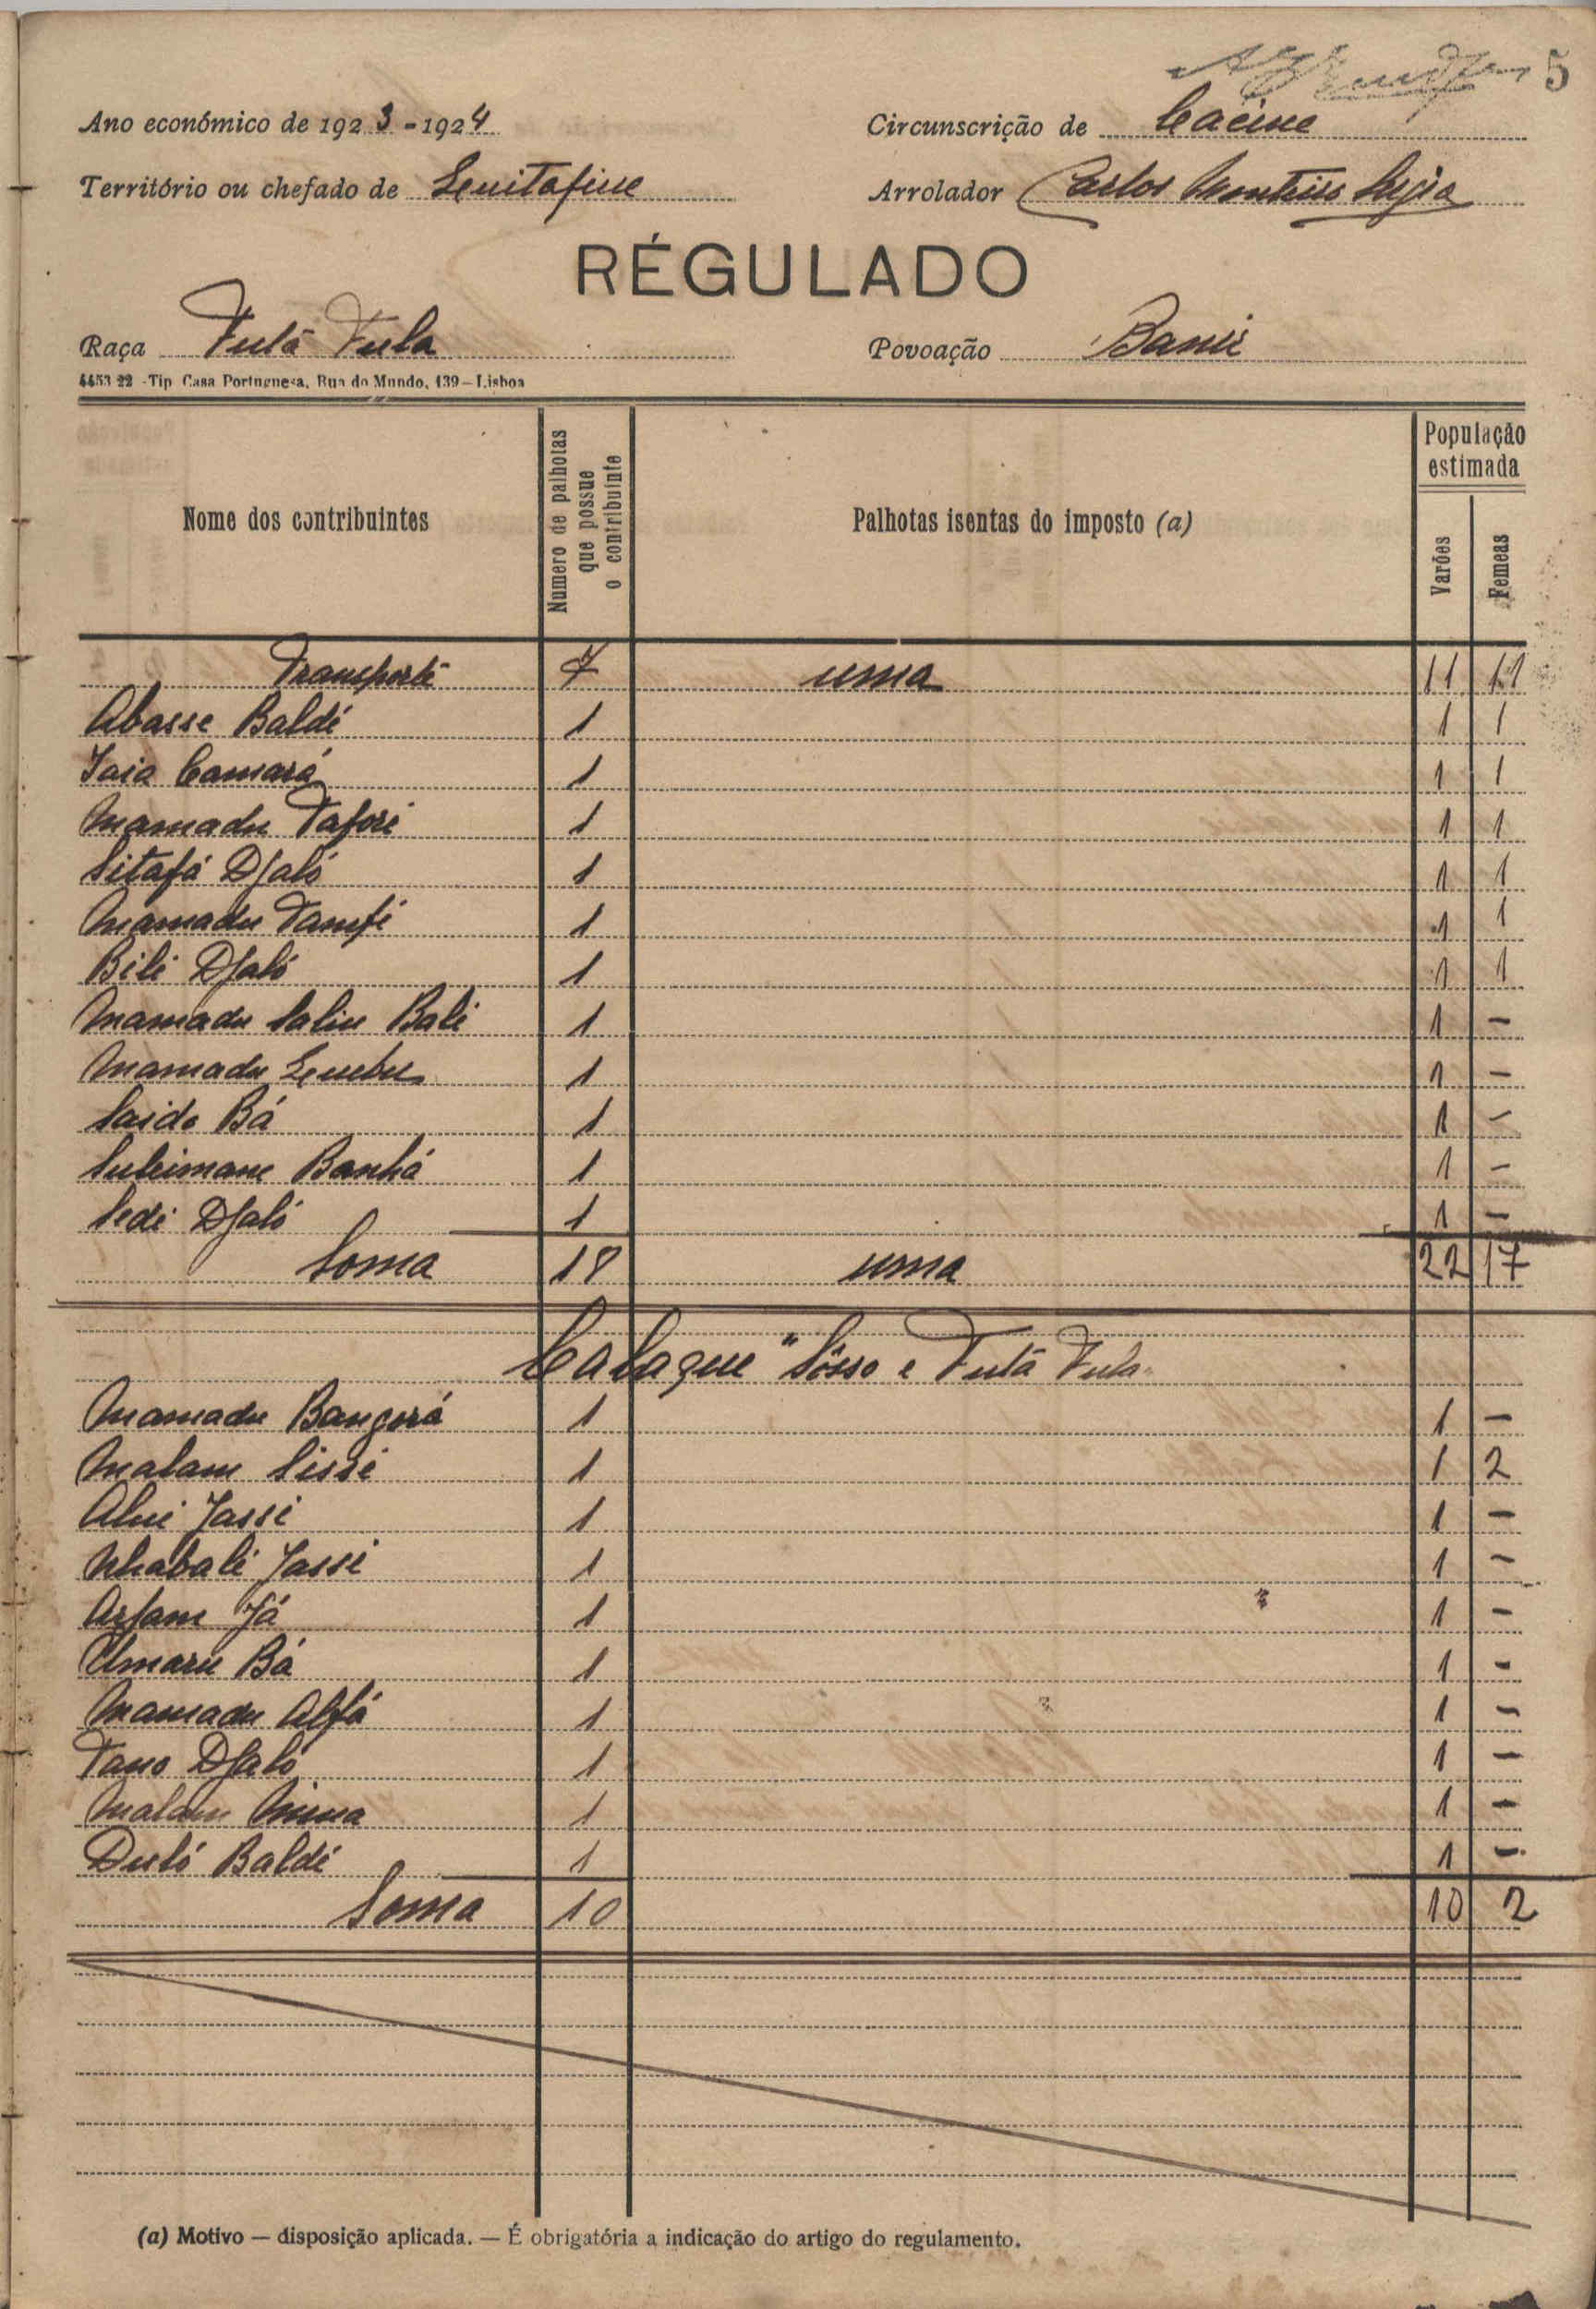 5
Ano económico de 1923-1924 Circunscrição de Cacine
Território ou chefado de Arrolador Carlos
RÉGULADO
Raça Futá Fula Povoação
4453 22 - Tip Casa Portuguesa, Rua do Mundo, 139 - Lisboa
Nome dos contribuintes Numero de palhotas que possue o contribuinte Palhotas isentas do imposto (a) População estimada Varões Femeas
Transporte 7 uma 11 11
Abasse Baldé 1 1 1
Jaia Camará 1 1 1
Mamadu Tafori 1 1 1
Sitafá Djaló 1 1 1
Mamadu 1 1 1
Bili Djaló 1 1 1
Mamadu Saliu Bali 1 1 -
Mamadu 1 1 -
Saido Bá 1 1 -
Suleimane Banhá 1 1 -
Sedi Djaló 1 1 -
Soma 18 uma 22 17
Calaque " Sôsso e Futá Fula
Mamadu Bangorá 1 1 -
Malam Sissé 1 1 2
Jassi 1 1 -
Nhabali Jassi 1 1 -
Arfam Já 1 1 -
Umaru Bá 1 1 -
Mamadu Alfá 1 1 -
Tano Djaló 1 1 -
Malam Mina 1 1 -
Duló Baldé 1 1 -
Soma 10 10 2
(a) Motivo — disposição aplicada. — É obrigatória a indicação do artigo do regulamento.